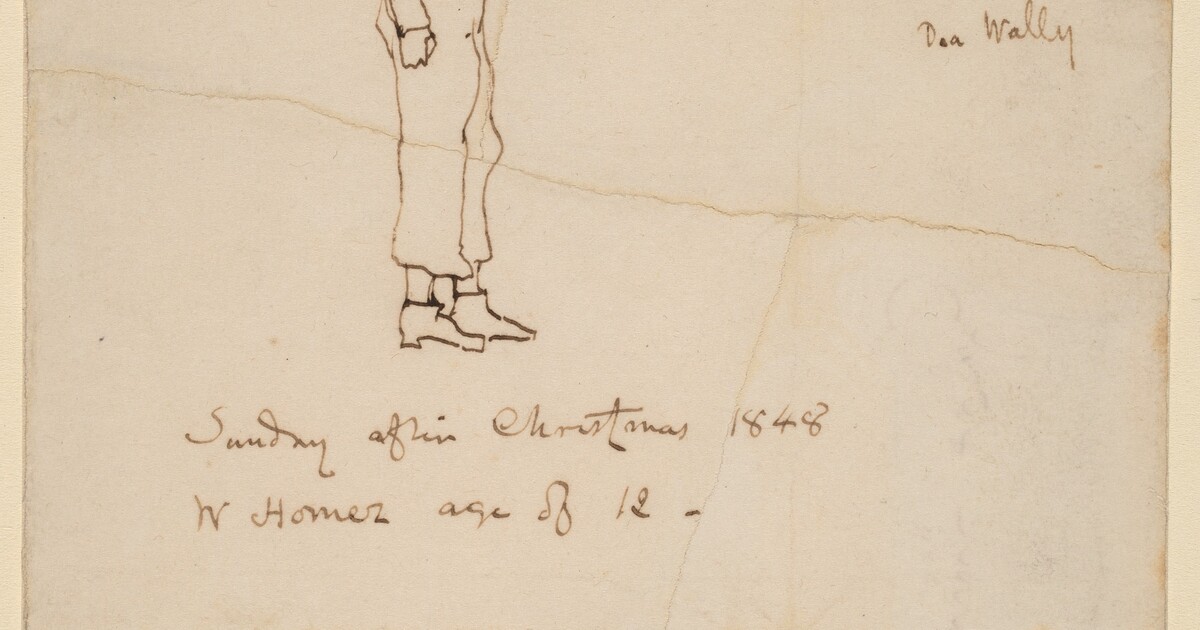 Dea Wally
Sunday after Christmas 1848
W Homer age of 12 -